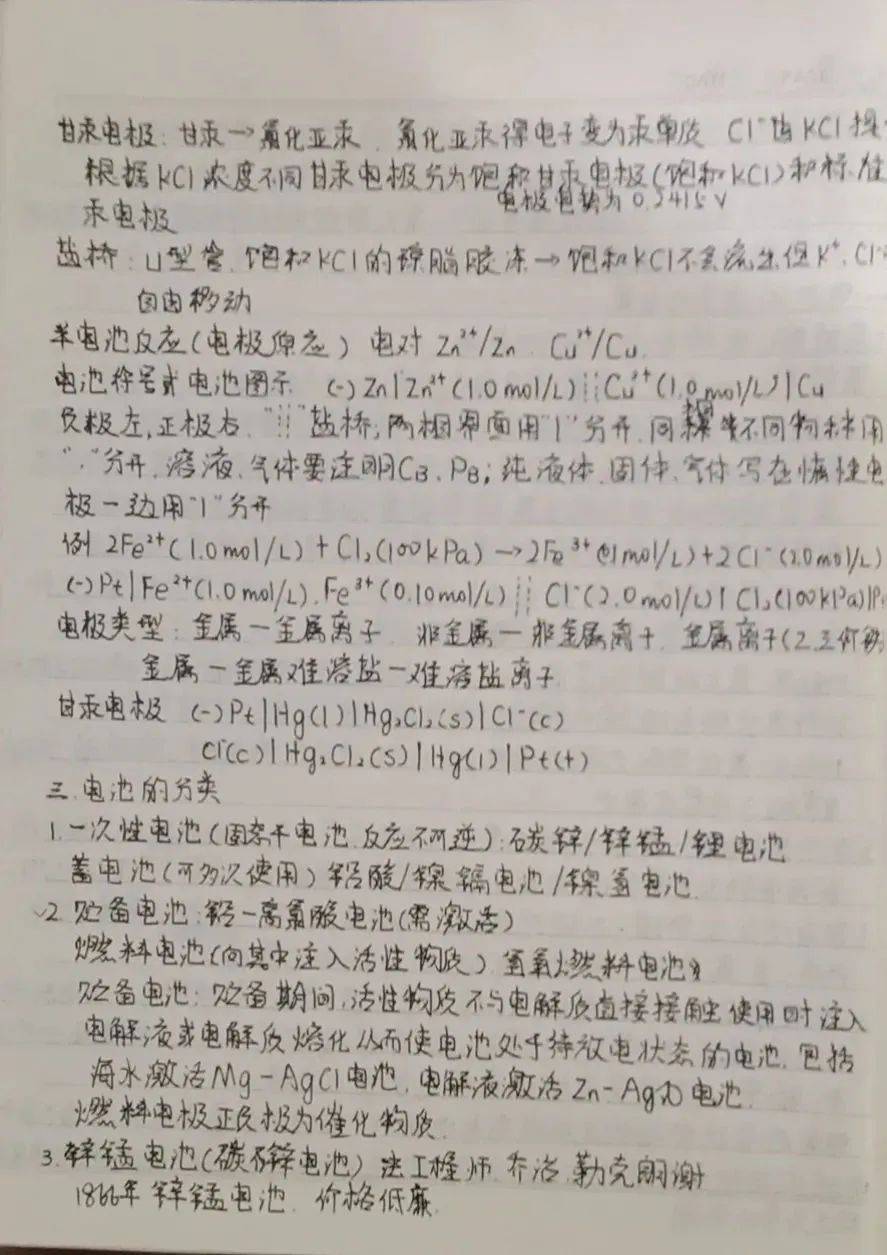 甘汞电极：甘汞→氯化亚汞．氯化亚汞得电子变为汞单质 Cl⁻由KCl提
根据KCl浓度不同甘汞电极分为饱和甘汞电极(饱和KCl)和标准
电极电势为0.2415V
汞电极
盐桥：U型管．饱和KCl的琼脂胶冻→饱和KCl不会流出但K⁺、Cl⁻
自由移动
半电池反应(电极反应) 电对 Zn²⁺/Zn．Cu²⁺/Cu．
电池符号或电池图示 (-)Zn|Zn²⁺(1.0mol/L)┊┊Cu²⁺(1.0mol/L)|Cu
负极左,正极右．"┊┊"盐桥;两相界面用"|"分开．同相不同物种用
"，"分开．溶液、气体要注明CB、PB; 纯液体．固体．气体写在惰性电
极一边用"|"分开
例 2Fe²⁺(1.0mol/L)+Cl₂(100kPa)→2Fe³⁺(0.1mol/L)+2Cl⁻(2.0mol/L)
(-)Pt|Fe²⁺(1.0mol/L).Fe³⁺(0.10mol/L)┊┊Cl⁻(2.0mol/L)|Cl₂(100kPa)|P
电极类型：金属—金属离子．非金属—非金属离子．金属离子(2.三价
金属—金属难溶盐—难溶盐离子
甘汞电极 (-)Pt|Hg(l)|Hg₂Cl₂(s)|Cl⁻(c)
Cl⁻(c)|Hg₂Cl₂(s)|Hg(l)|Pt(+)
三．电池的分类
1.一次性电池(固汞干电池．反应不可逆)：石碳锌/锌锰/锂电池
蓄电池(可多次使用)铅酸/镍镉电池/镍氢电池．
✓2.贮备电池：铅—高氯酸电池(需激活)
燃料电池(向其中注入活性物质)．氢氧燃料电池
贮备电池：贮备期间,活性物质不与电解质直接接触使用时注入
电解液或电解质熔化从而使电池处于待放电状态的电池．包括
海水激活Mg-AgCl电池．电解液激活Zn-Ag₂O电池．
燃料电极正负极为催化物质．
3.锌锰电池(碳锌电池) 法工程师．乔治．勒克朗谢
1866年锌锰电池．价格低廉．